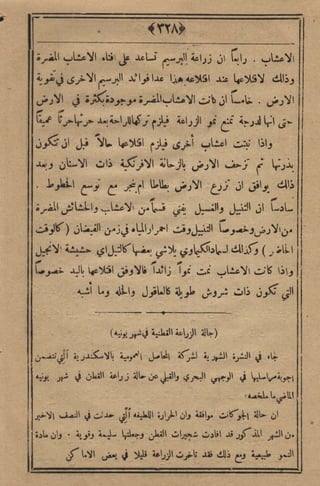 ﴿٣٢٨﴾
الاعشاب . رابعاً ان زراعة البرسيم تساعد على افناء الاعشاب المضرة
وذلك لاقتلاعها عند اقتلاعه هذا عدا فوائد البرسيم الاخرى في تقوية
الارض . خامساً ان كانت الاعشاب المضرة موجودة بكثرة في الارض
حتى انها لدرجة تمنع نمو الزراعة فيلزم تركها للراحة بعد حرثها حرثاً عميقاً
واذا نبتت اعشاب أخرى فيلزم اقتلاعها حالاً قبل ان تتكون
بذرتها ثم تزحف الارض بالزحافة الافرنكية ذات الاسنان وبعد
ذلك يوافق ان تزرع الارض بطاطا او بنجر مع توسع الخطوط .
سادساً ان التنييل والغسيل يفني قسماً من الاعشاب والحشائش المضرة
من الارض وخصوصاً التنييل وقت احمرار المياه في زمن الفيضان ( كالوقت
الحاضر ) وكذلك لسماد الكيماوي يلاشي بعضها كالتبل اي حشيشة الانجيل
واذا كانت الاعشاب نمت نمواً زائداً فالاوفق اقتلاعها باليد خصوصاً
التي تكون ذات شروش طويلة كالعاقول والحلفه وما أشبه
(حالة الزراعة القطنية في شهر يونيه)
جاء في النشرة الشهرية لشركة المحاصل العمومية بالاسكندرية التي تتضمن
اجوبة مراسليها في الوجهي البحري والقبلي عن حالة زراعة القطن في شهر يونيه
الماضي ما ملخصه
ان حالة الجو كانت موافقة وان الحرارة اللطيفه التي حدثت في النصف الاخير
من الشهر المذكور قد افادت شجيرات القطن وجعلتها سليمة وقوية . وان مادة
النمو طبيعية ومع ذلك فقد تاخرت الزراعة قليلا في بعض الاماكن